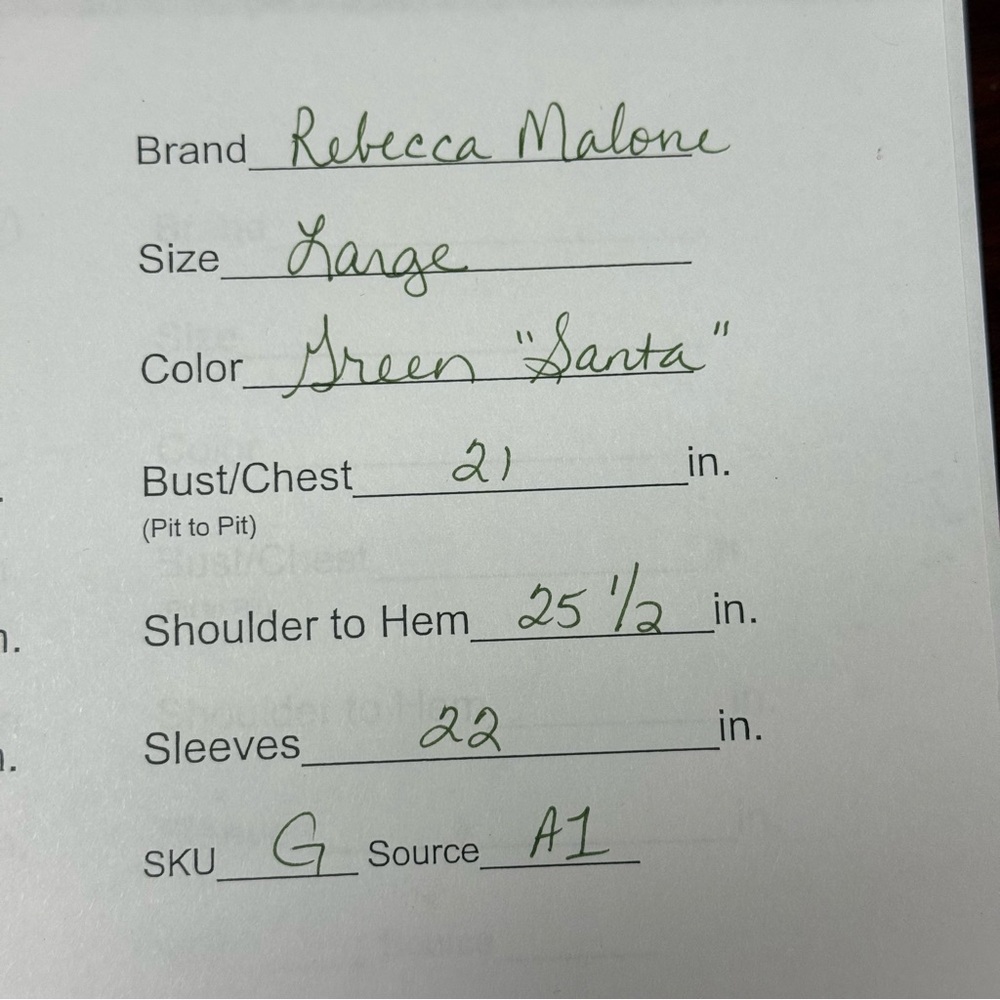 Brand Rebecca Malone
Size Large
Color Green "Santa"
Bust/Chest 21 in.
(Pit to Pit)
Shoulder to Hem 25 1/2 in.
Sleeves 22 in.
SKU G Source A1